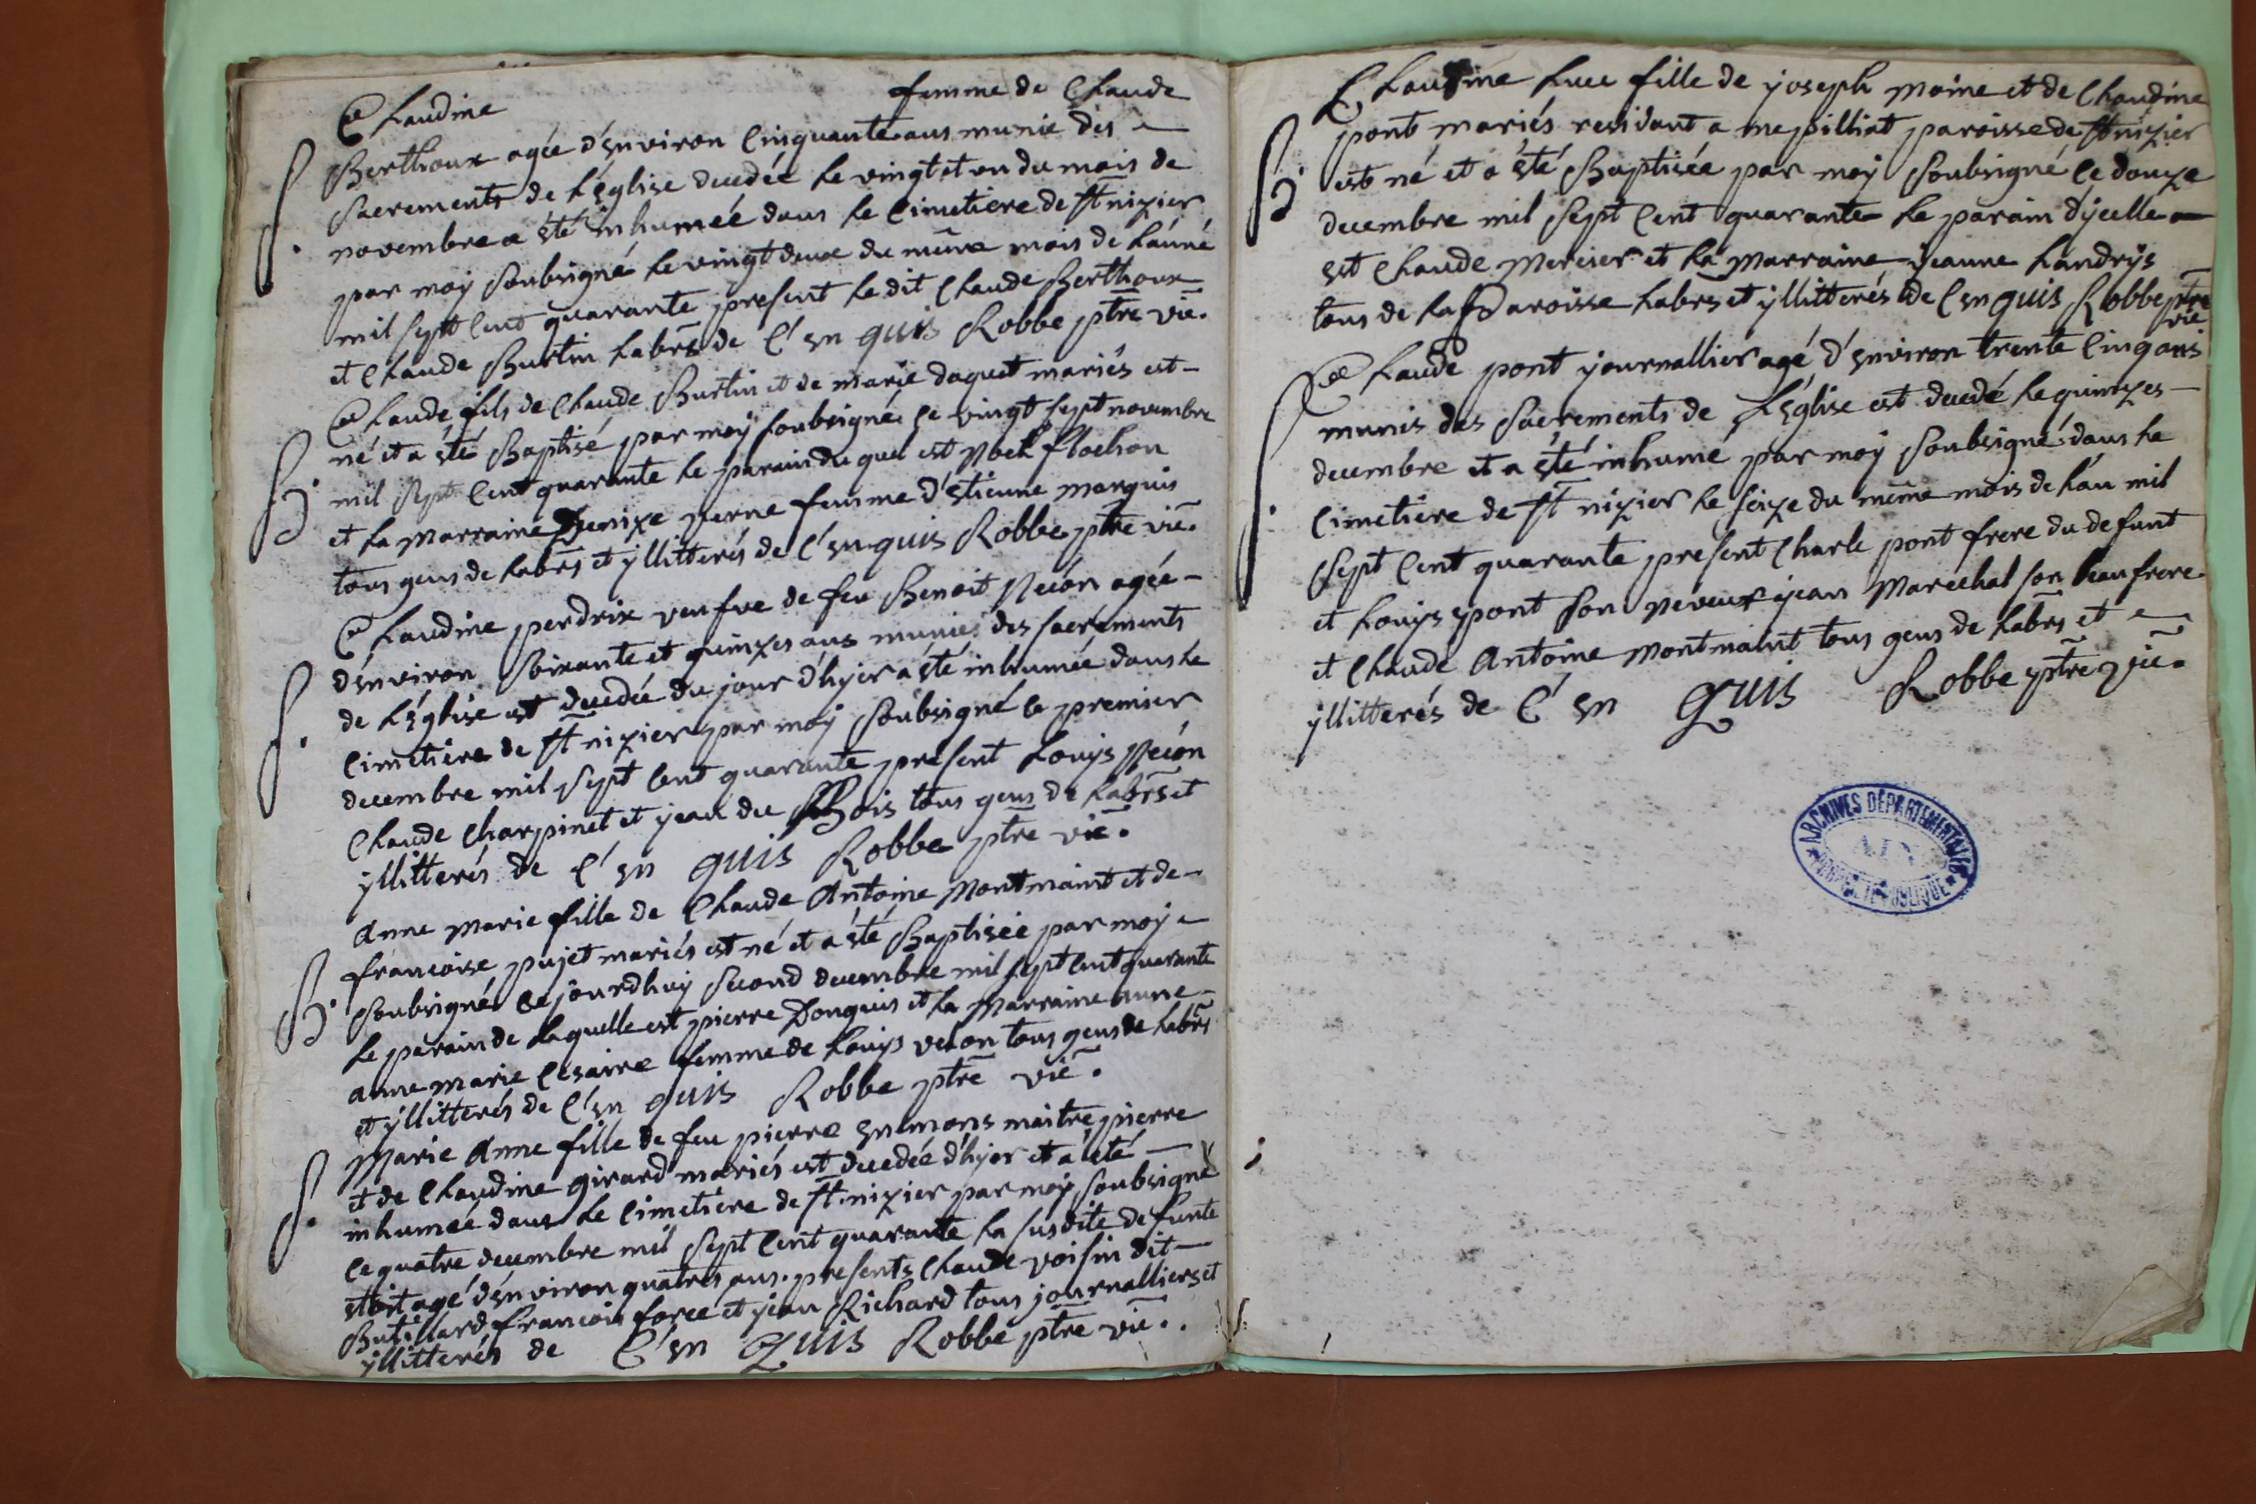 Claudine femme de Claude
Berthoux agée d'environ Cinquante ans munie des
S.
sacrements de l'église decedée le vingt et un du mois de
novembre a été inhumée dans le Cimetiere de St nizier
par moÿ soubsigné le vingt deux du même mois de l'anné
mil sept Cent quarante present le dit Claude Berthoux
et Claude Burtin labrs de C'en quis Robbe ptre vic.
Claude fils de Claude Burtin et de marie daquet mariés est
né et a été Baptisé par moÿ soubsigné ce vingt sept novembre
B.
mil sept Cent quarante le parain du quel est Noel flochon
et la marraine Denize perne femme d'étienne marquis
tous gens de labrs et ÿllitterés de C'en quis Robbe ptre vic.
Claudine perdrix veufve de feu Benoit Neión agée
d'environ soixante et quinzes ans munies des sacrements
S.
de l'église est decedée du jour d'hÿer a été inhumée dans le
Cimetiere de St nizier par moÿ soubsigné le premier
decembre mil sept Cent quarante present Louÿs Neión
Claude Charpinet et jean du Bois tous gens de labrs et
ÿllitterés de C'en quis Robbe ptre vic.
Anne Marie fille de Claude Antoine Montmaint et de
francoise pujet mariés est né et a été Baptisée par moÿ
B.
soubsigné ce jourd'huÿ second decembre mil sept Cent quarante
le perain de laquelle est pierre Donguis et la Marraine anne
anne marie Cesaire femme de Louÿs velon tous gens de labrs
et ÿllitterés de C'en quis Robbe ptre vic.
Marie Anne fille de feu pierre enmons maitre pierre
et de Claudine girard mariés est decedée d'hÿer et a été
S.
inhumée dans le Cimetiere de St nizier par moÿ soubsigné
ce quatre decembre mil sept Cent quarante la susdite defunte
etoit agé d'environ quatres ans. presents Claude voisin dit
Butillard francois foreé et jean Richard tous journalliers et
ÿllitterés de C'en quis Robbe ptre vic.
Claudine fille de joseph moine et de Claudine
pont mariés residant a mepilliat paroisse de St nizier
B.
est né et a été Baptisée par moÿ soubsigné ce douze
decembre mil sept Cent quarante le parain d'ÿcelle
est Claude Mercier et la Marraine jeanne Landrÿs
tous de la Paroisse labrs et ÿllitterés de C'en quis Robbe ptre
vic
Claude pont journallier agé d'environ trente Cinq ans
munis des sacrements de L'église est decedé le quinzes
S.
decembre et a été inhumé par moÿ soubsigné dans le
Cimetiere de St nizier le seize du même mois de l'an mil
sept Cent quarante present Charle pont frere du defunt
et Louÿs pont son neveux jean Marechal son beaufrere
et Claude Antoine Montmaint tous gens de labrs et
ÿllitterés de C'en quis Robbe ptre vic.
ARCHIVES DÉPARTEMENTALES
AIN
PROPRIÉTÉ PUBLIQUE